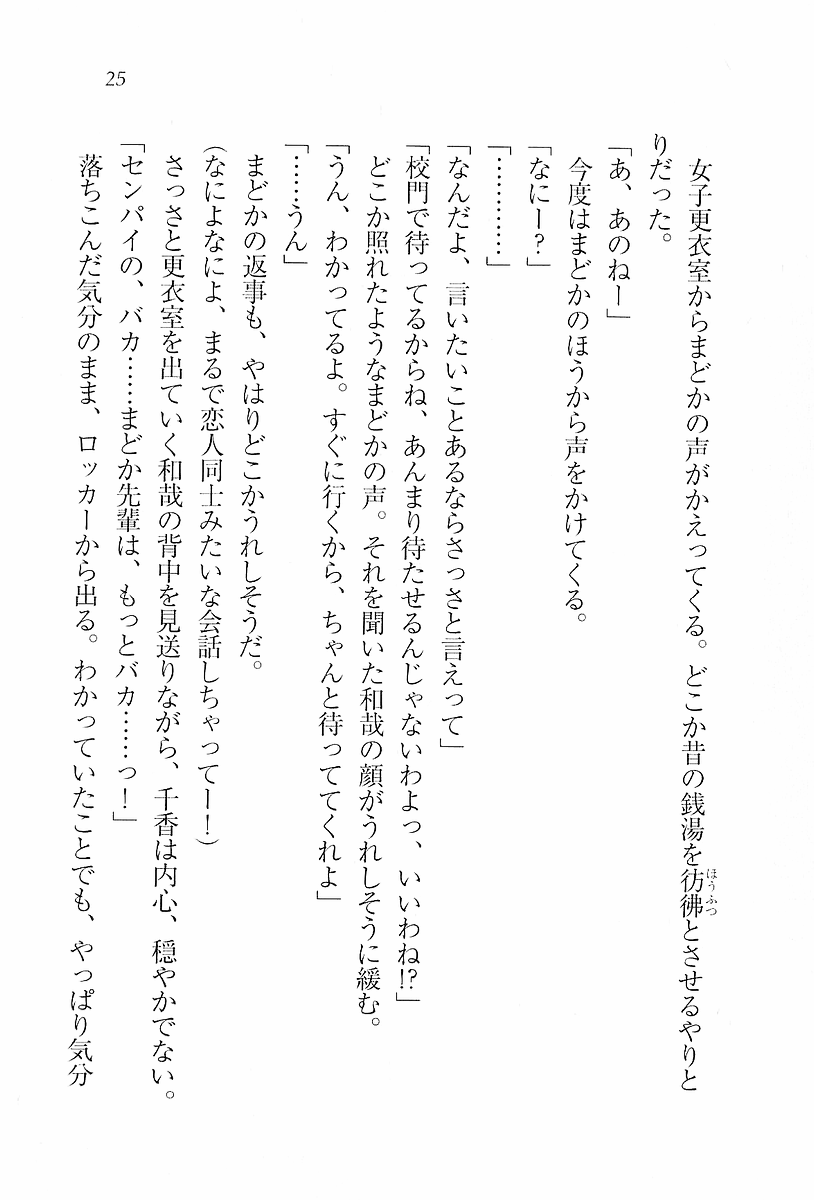 25
女子更衣室からまどかの声がかえってくる。どこか昔の銭湯を彷彿とさせるやりと
ほうふつ
りだった。
「あ、あのねー」
今度はまどかのほうから声をかけてくる。
「なにー?」
「…………」
「なんだよ、言いたいことあるならさっさと言えって」
「校門で待ってるからね、あんまり待たせるんじゃないわよっ、いいわね!?」
どこか照れたようなまどかの声。それを聞いた和哉の顔がうれしそうに緩む。
「うん、わかってるよ。すぐに行くから、ちゃんと待っててくれよ」
「……うん」
まどかの返事も、やはりどこかうれしそうだ。
(なによなによ、まるで恋人同士みたいな会話しちゃってー!)
さっさと更衣室を出ていく和哉の背中を見送りながら、千香は内心、穏やかでない。
「センパイの、バカ……まどか先輩は、もっとバカ……っ!」
落ちこんだ気分のまま、ロッカーから出る。わかっていたことでも、やっぱり気分